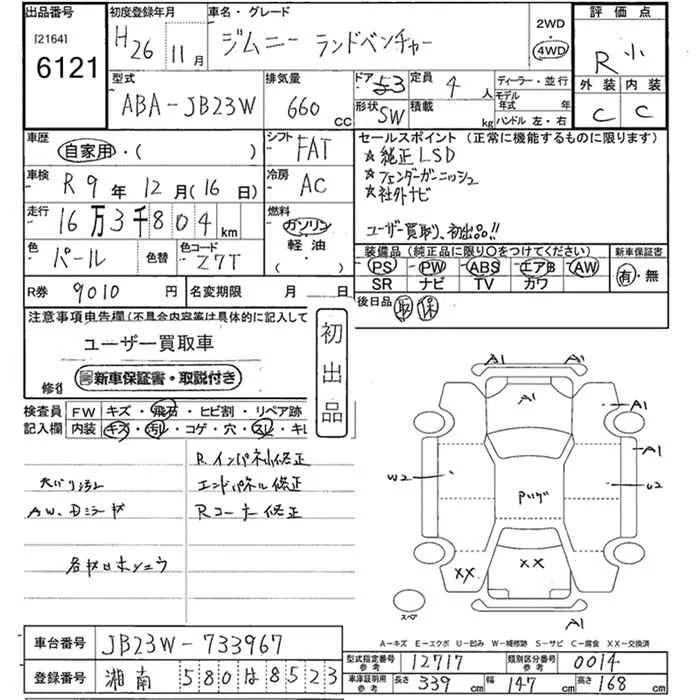 出品番号 初度登録年月 車名・グレード 2WD 評価点
[2164] H26 11月 ジムニー ランドベンチャー 4WD R 小
6121
型式 排気量 ドア 53 定員 4人 ディーラー・並行 外装 内装
ABA-JB23W 660 CC 形状 SW 積載 kg モデル年式 年 ハンドル 左・右 C C
車歴 自家用・( ) シフト FAT セールスポイント(正常に機能するものに限ります)
車検 R9年12月(16日) 冷房 AC ★純正LSD
★フェンダーガーニッシュ
★社外ナビ
走行 16万3千804km 燃料 ガソリン 軽油 ( ) ユーザー買取り、初出品!!
色 パール 色替 色コード Z7T 装備品(純正品に限り○をつけてください) 新車保証書
PS PW ABS エアB AW 有・無
R券 9010円 名変期限 月 日 SR ナビ TV カワ
後日品 取 保
注意事項申告欄(不具合内容等は具体的に記入して
ユーザー買取車 初出品
新車保証書・取説付き
修復
検査員 FW キズ・飛石・ヒビ割・リペア跡
記入欄 内装 キズ・汚レ・コゲ・穴・スレ・キレ
Rインパネ小修正
エンドパネル修正
AW、Dミラーキズ Rコーナー修正
A1 A1
A1
A1
A1
W2 U2
XX XX
スペア
A1
A-キズ E-エクボ U-凹み W-補修跡 S-サビ C-腐食 XX-交換済
車台番号 JB23W-733967 型式指定番号 参考 12717 類別区分番号 参考 0014
登録番号 湘南 580は8523 車庫証明用 参考 長さ 339cm 幅 147cm 高さ 168cm